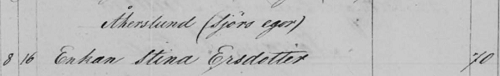 Åkerslund (Sjörs egor)
8 16 Enkan Stina Ersdotter 70